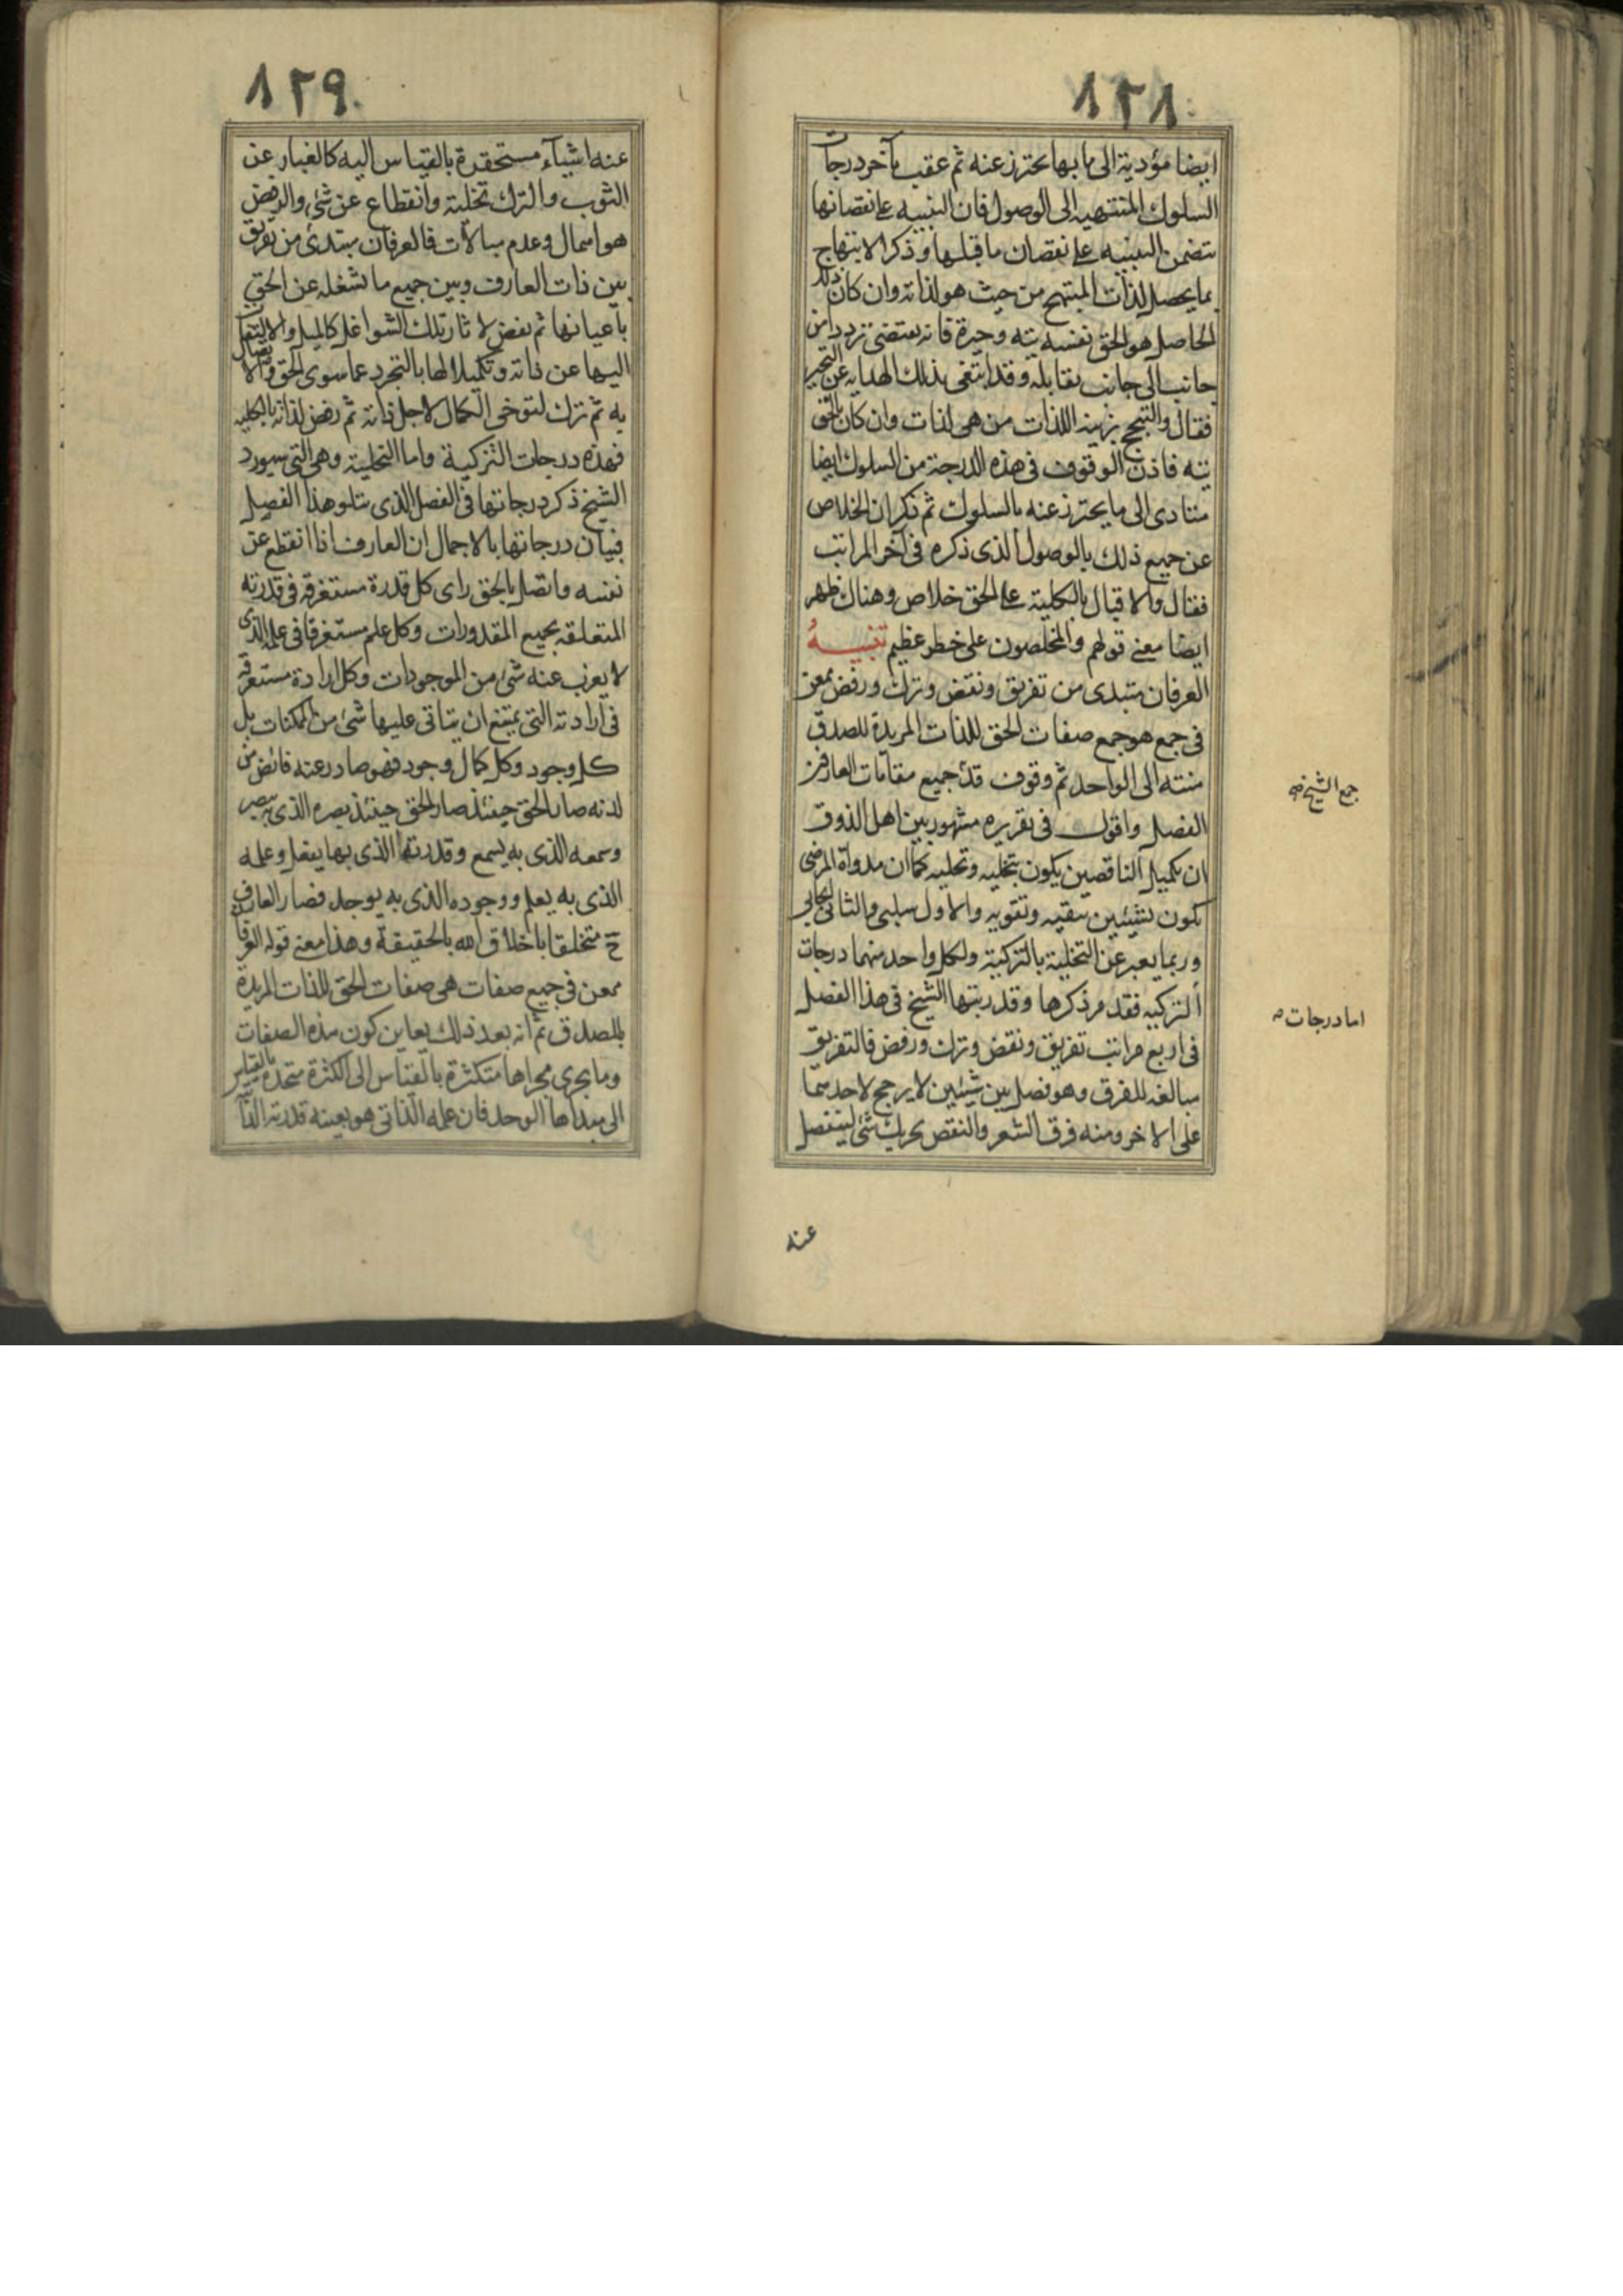 ١٢٨
ايضا مؤدية الى ما بها يحترز عنه ثم عقب بآخر درجات
السلوك المنتهية الى الوصول فان التنبيه على نقصانها
يتضمن التنبيه على نقصان ما قبلها وذكر الابتهاج
بما يحصل لذات المبتهج من حيث هو لذاته وان كان ذلك
الحاصل هو الحق نفسه تيه وحيرة فانه يقتضى تردد من
جانب الى جانب يقابله وقد ابتغى بذلك الهداية عن التحير
فقال والتبجح بزينة اللذات من هى لذات وان كان بالحق
تيه فاذن الوقوف فى هذه الدرجة من السلوك ايضا
متادى الى ما يحترز عنه بالسلوك ثم ذكر ان الخلاص
عن جميع ذلك بالوصول الذى ذكره فى آخر المراتب
فقال والاقبال بالكلية على الحق خلاص وهناك ظهر
ايضا معنى قولهم والمخلصون على خطر عظيم تنبيهُ
العرفان مبتدى من تفريق ونقض وترك ورفض ممعن
فى جمع هو جمع صفات الحق للذات المريدة للصدق
منته الى الواحد ثم وقوف قد جميع مقامات العارفين
جمع الشيخ صح
الفصل واقول فى تقريره مشهور بين اهل الذوق
ان تكميل الناقصين يكون بتخلية وتحلية كما ان مداواة المرضى
تكون بشيئين تنقية وتقوية والاول سلبى والثانى ايجابى
وربما يعبر عن التخلية بالتزكية ولكل واحد منهما درجات
اما درجات ص
التزكية فقد مر ذكرها وقد رتبها الشيخ فى هذا الفصل
فى اربع مراتب تفريق ونقض وترك ورفض فالتفريق
مبالغة للفرق وهو فصل بين شيئين لا يرجح لاحدهما
على الاخر ومنه فرق الشعر والنقض تحريك شئ لينفصل
عنه
١٢٩
عنه اشياء مستحقرة بالقياس اليه كالغبار عن
الثوب والترك تخلية وانقطاع عن شئ والرفض
هو اهمال وعدم مبالات فالعرفان مبتدئ من تفريق
بين ذات العارف وبين جميع ما تشغله عن الحق
باعيانها ثم نفض لاثار تلك الشواغل كالميل والالتفات
اليها عن ذاته وتكميلا لها بالتجرد عما سوى الحق والاتصال
به ثم ترك لتوخى الكمال لاجل ذاته ثم رفض لذاته بالكلية
فهذه درجات التزكية واما التحلية وهى التى سيورد
الشيخ ذكر درجاتها فى الفصل الذى يتلو هذا الفصل
فبيان درجاتها بالاجمال ان العارف اذا انقطع عن
نفسه واتصل بالحق راى كل قدرة مستغرقة فى قدرته
المتعلقة بجميع المقدورات وكل علم مستغرقا فى علمه الذى
لا يعزب عنه شئ من الموجودات وكل ارادة مستغرقة
فى ارادته التى يمتنع ان يتاتى عليها شئ من الممكنات بل
كل وجود وكل كمال وجود فهو صادر عنه فائض من
لدنه صار الحق حينئذ صار الحق حينئذ بصره الذى به يبصر
وسمعه الذى به يسمع وقدرته الذى بها يفعل وعلمه
الذى به يعلم ووجوده الذى به يوجد فصار العارف
ح متخلقا باخلاق الله بالحقيقة وهذا معنى قوله العرفان
ممعن فى جميع صفات هى صفات الحق للذات المريدة
بالصدق ثم انه بعد ذلك يعاين كون هذه الصفات
وما يجرى مجراها متكثرة بالقياس الى الكثرة متحدة بالقياس
الى مبدأها الوحد فان علمه الذاتى هو بعينه قدرته الذاتية